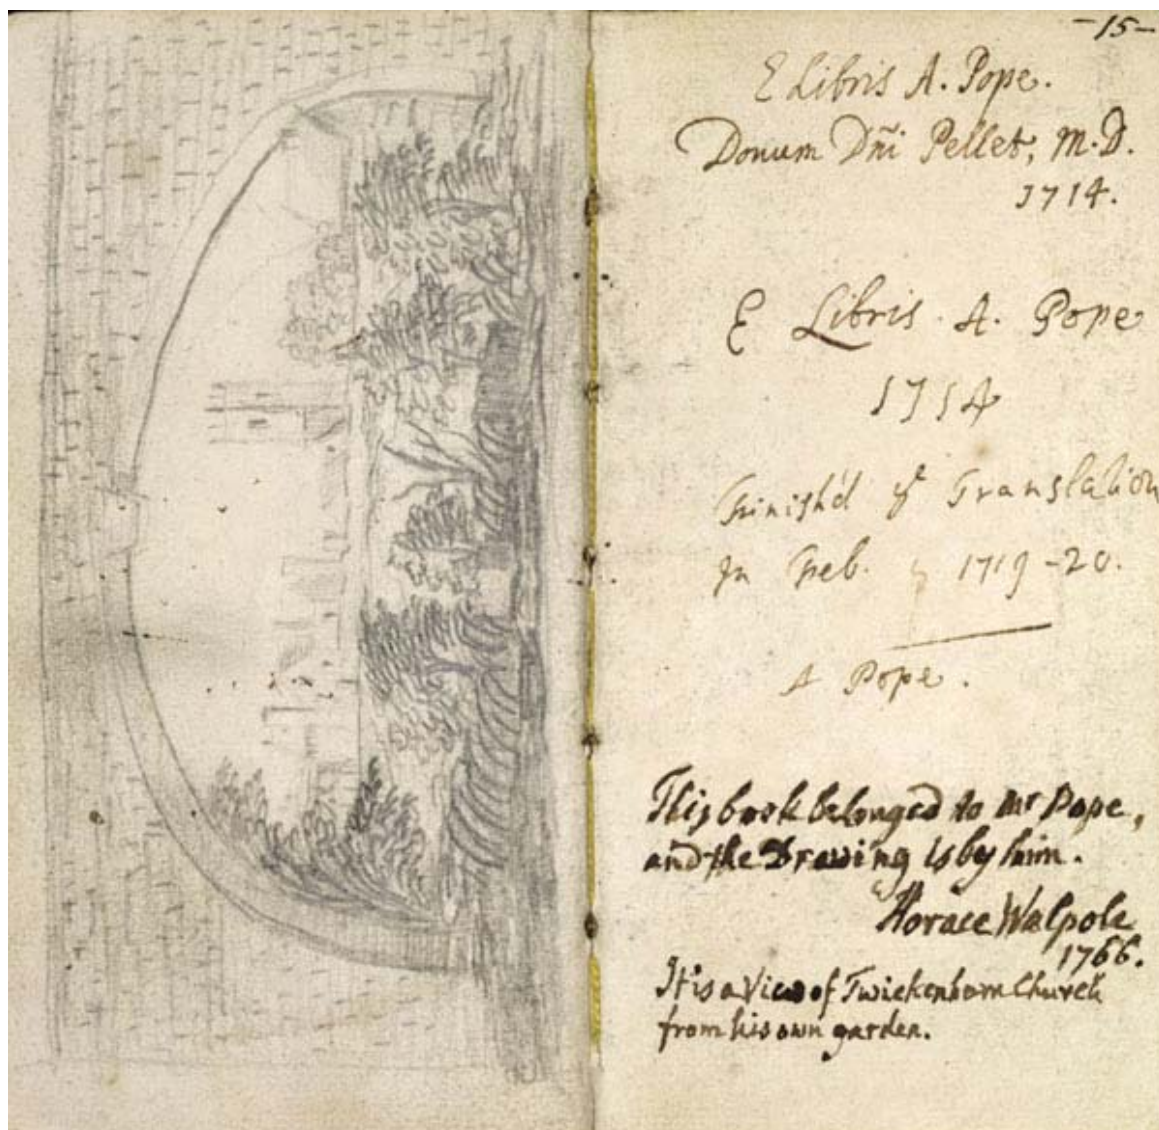 -15-
E Libris A. Pope.
Donum Dñi Pellet, M.D.
1714.
E Libris A. Pope
1714
Finish'd yᵉ Translation
In Feb. 1719-20.
A Pope.
This book belonged to Mr Pope,
and the Drawing is by him.
Horace Walpole
1766.
It is a View of Twickenham Church
from his own garden.